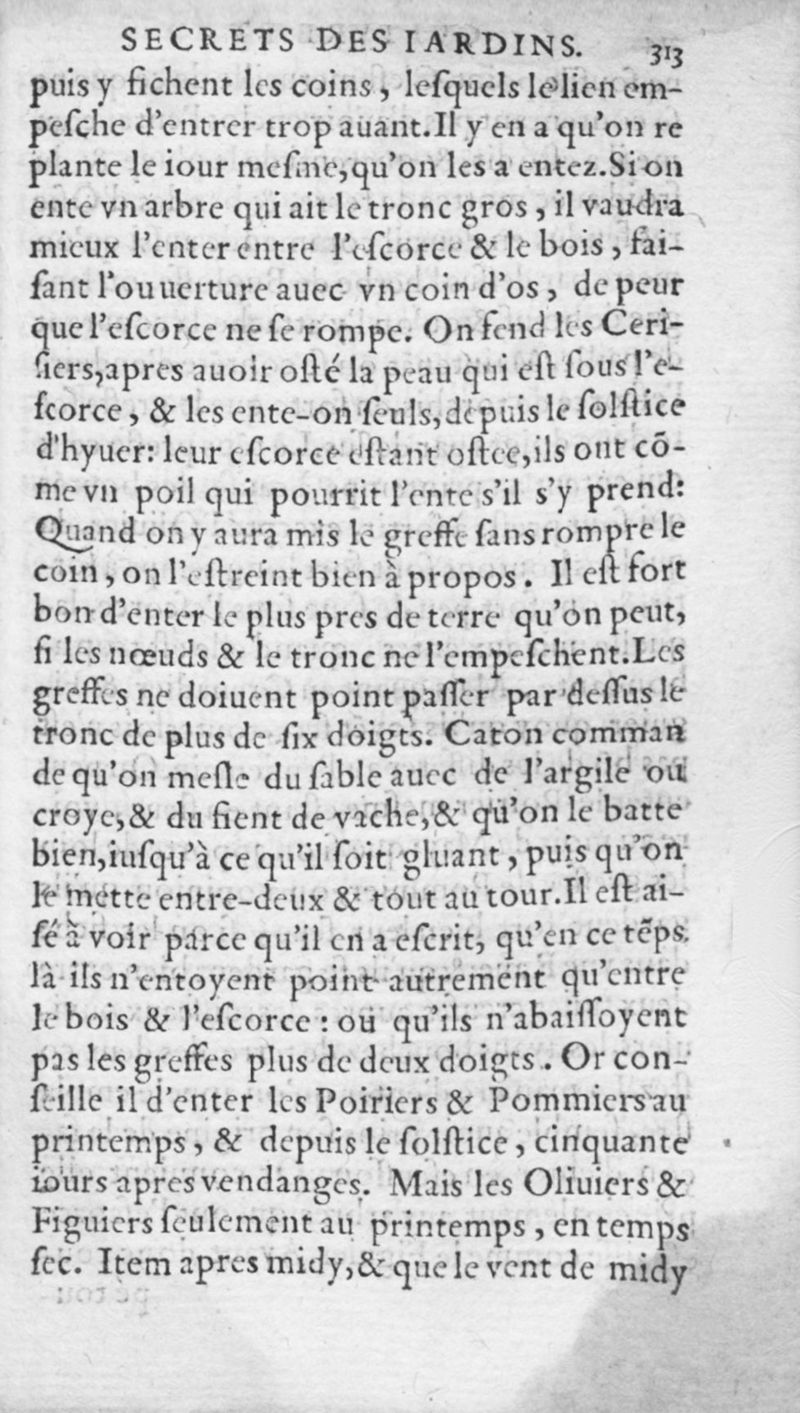 SECRETS DES IARDINS. 313
puis y fichent les coins, leſquels le lien em-
peſche d'entrer trop auant. Il y en a qu'on re
plante le iour meſme, qu'on les a entez. Si on
ente vn arbre qui ait le tronc gros, il vaudra
mieux l'enter entre l'eſcorce & le bois, fai-
ſant l'ouuerture auec vn coin d'os, de peur
que l'eſcorce ne ſe rompe. On fend les Ceri-
ſiers, apres auoir oſté la peau qui eſt ſous l'e-
ſcorce, & les ente-on ſeuls, depuis le ſolſtice
d'hyuer: leur eſcorce eſtant oſtee, ils ont cō-
me vn poil qui pourrit l'ente s'il s'y prend:
Quand on y aura mis le greffe ſans rompre le
coin, on l'eſtreint bien à propos. Il eſt fort
bon d'enter le plus pres de terre qu'on peut,
ſi les nœuds & le tronc ne l'empeſchent. Les
greffes ne doiuent point paſſer par deſſus le
tronc de plus de ſix doigts. Caton comman
de qu'on meſle du ſable auec de l'argile ou
croye, & du fient de vache, & qu'on le batte
bien, iuſqu'à ce qu'il ſoit gluant, puis qu'on
le mette entre-deux & tout au tour. Il eſt ai-
ſé à voir parce qu'il en a eſcrit, qu'en ce tēps
là ils n'entoyent point autrement qu'entre
le bois & l'eſcorce: ou qu'ils n'abaiſſoyent
pas les greffes plus de deux doigts. Or con-
ſeille il d'enter les Poiriers & Pommiers au
printemps, & depuis le ſolſtice, cinquante
iours apres vendanges. Mais les Oliuiers &
Figuiers ſeulement au printemps, en temps
ſec. Item apres midy, & que le vent de midy